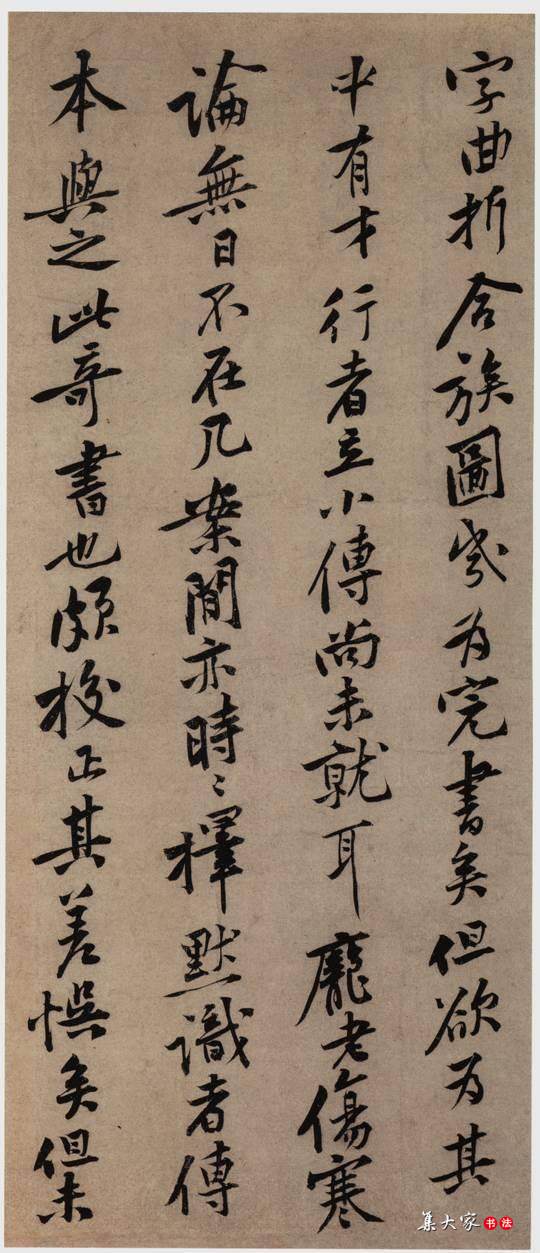 字曲折合族圖幾为完書矣但欲为其
中有才行者立小傳尚未就耳龐老傷寒
論無日不在几案閒亦時〻擇默識者傳
本與之此奇書也頗校正其差悮矣但未
集大家书法